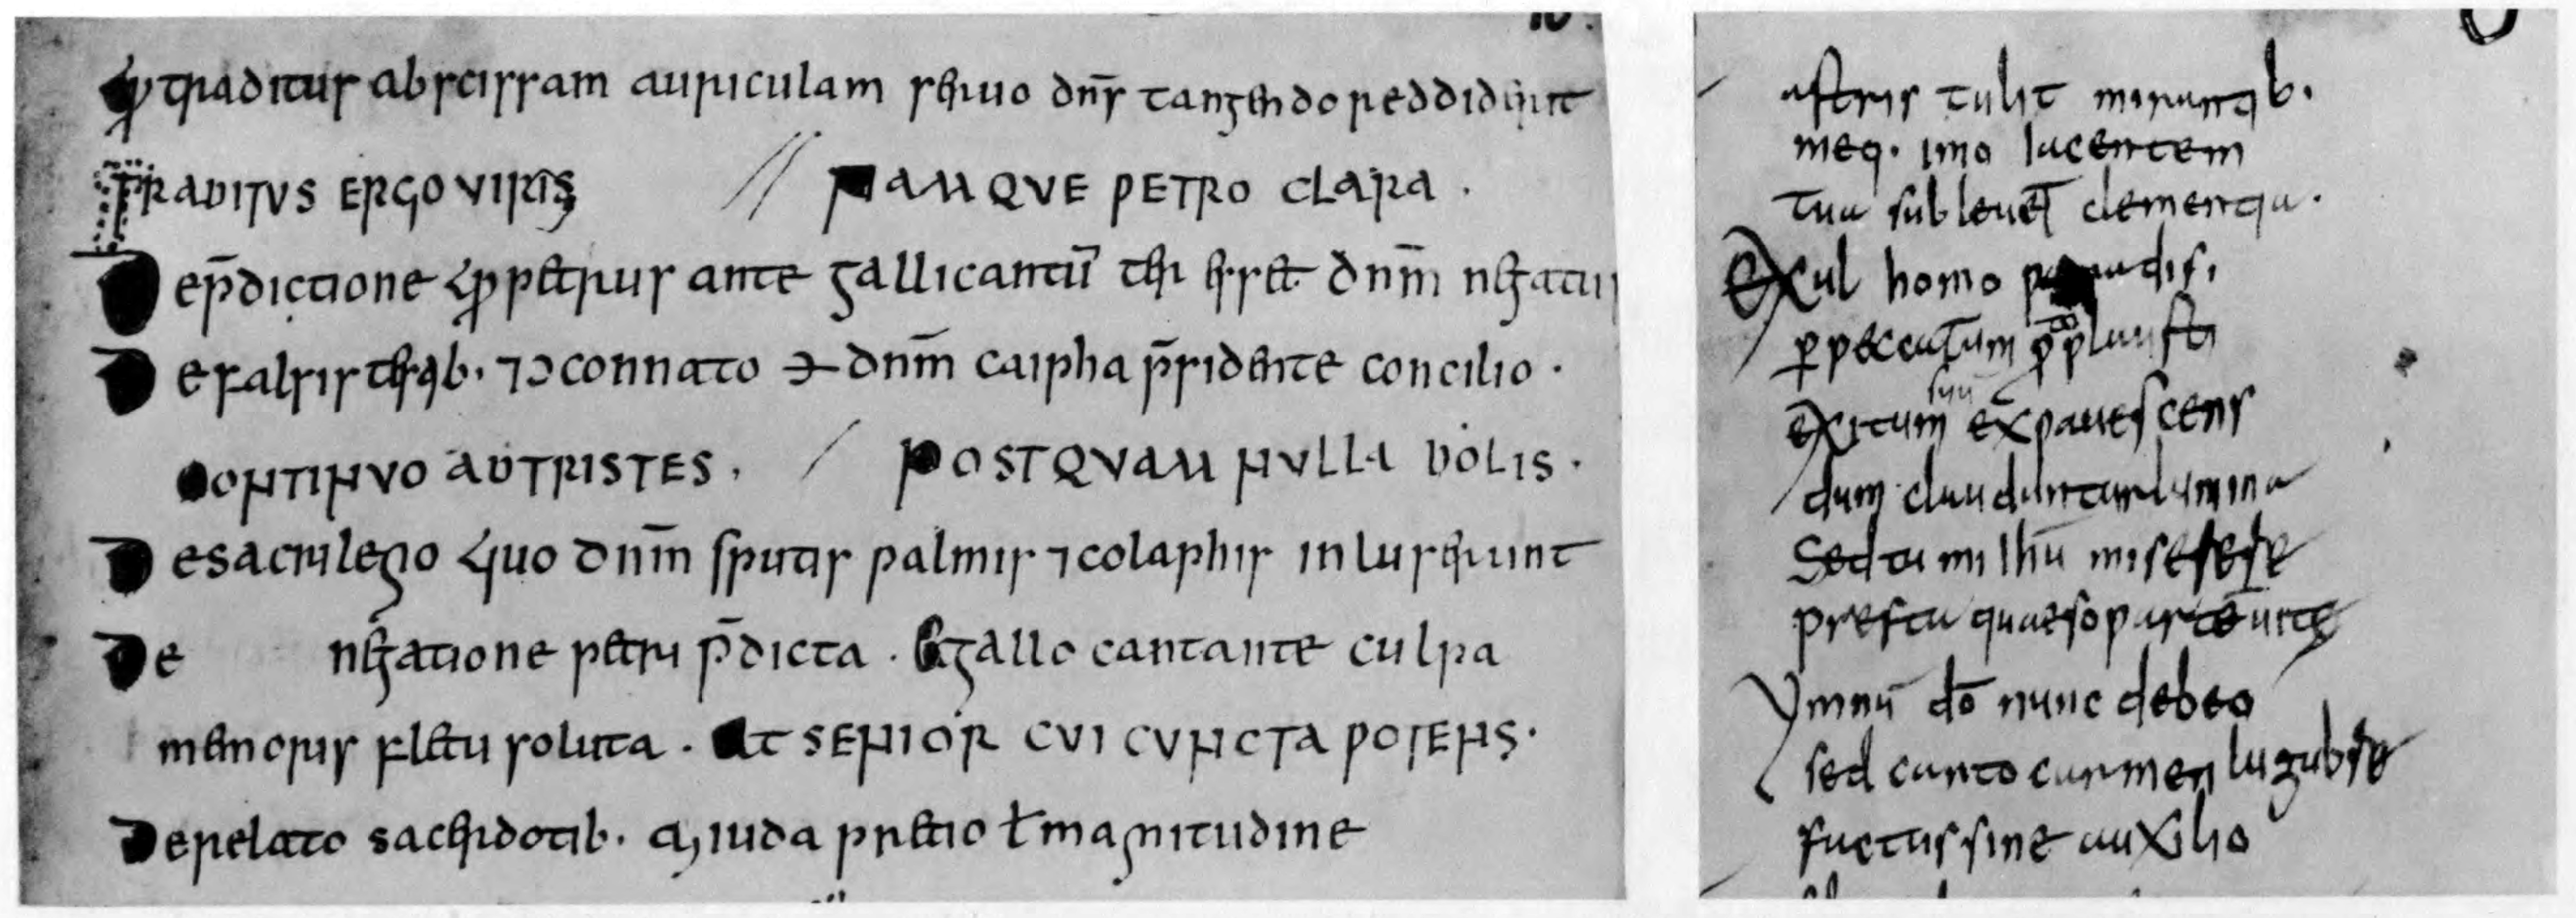 qd traditus abscissam auriculam seruo dn̄s tangendo reddiderit
TRADITVS ERGO VIRIS // NAMQVE PETRO CLARA .
De p̄dictione qd petrus ante gallicantū ter esset dn̄m negatur
De falsis testib. ⁊ connato dn̄m caipha p̄sidente concilio .
CONTINVO ADTRISTES . / POSTQVAM NVLLA DOLIS .
De sacrilego quo dn̄m sputis palmis ⁊ colaphis inluserunt
De negatione petri p̄dicta . Et gallo cantante culpa
memoris fletu soluta . AT SENIOR CVI CVNCTA POTENS .
De relato sacerdotib. a iuda pretio ł magnitudine
astris tulit minantib.
meq. imo lacentem
tua subleuet clementia .
Exul homo paradisi
ꝑ peccatum plausti
exitum suū expauescens
dum clauduntur lumina
Sed tu mihi miserere
presta quaeso parcente
Ymnū dō nunc debeo
sed canto carmen lugubre
factus sine auxilio